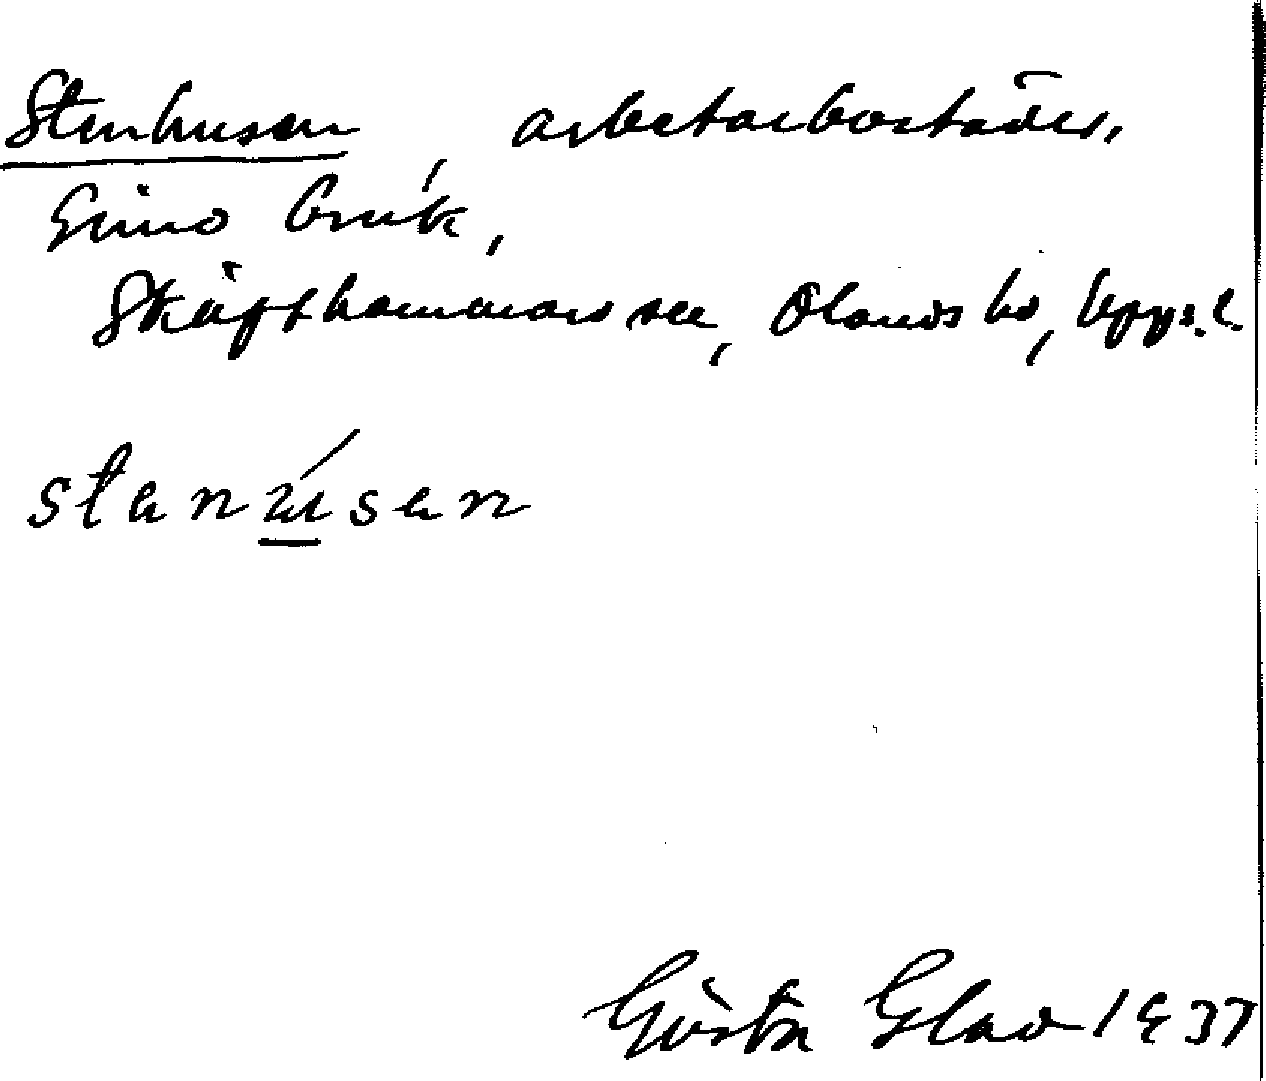 Stenhusen, arbetarbostäder,
Gimo bruk,
Skäfthammars sn, Olands hd, Upps. l.
stanúsan
Gösta Glad 1937